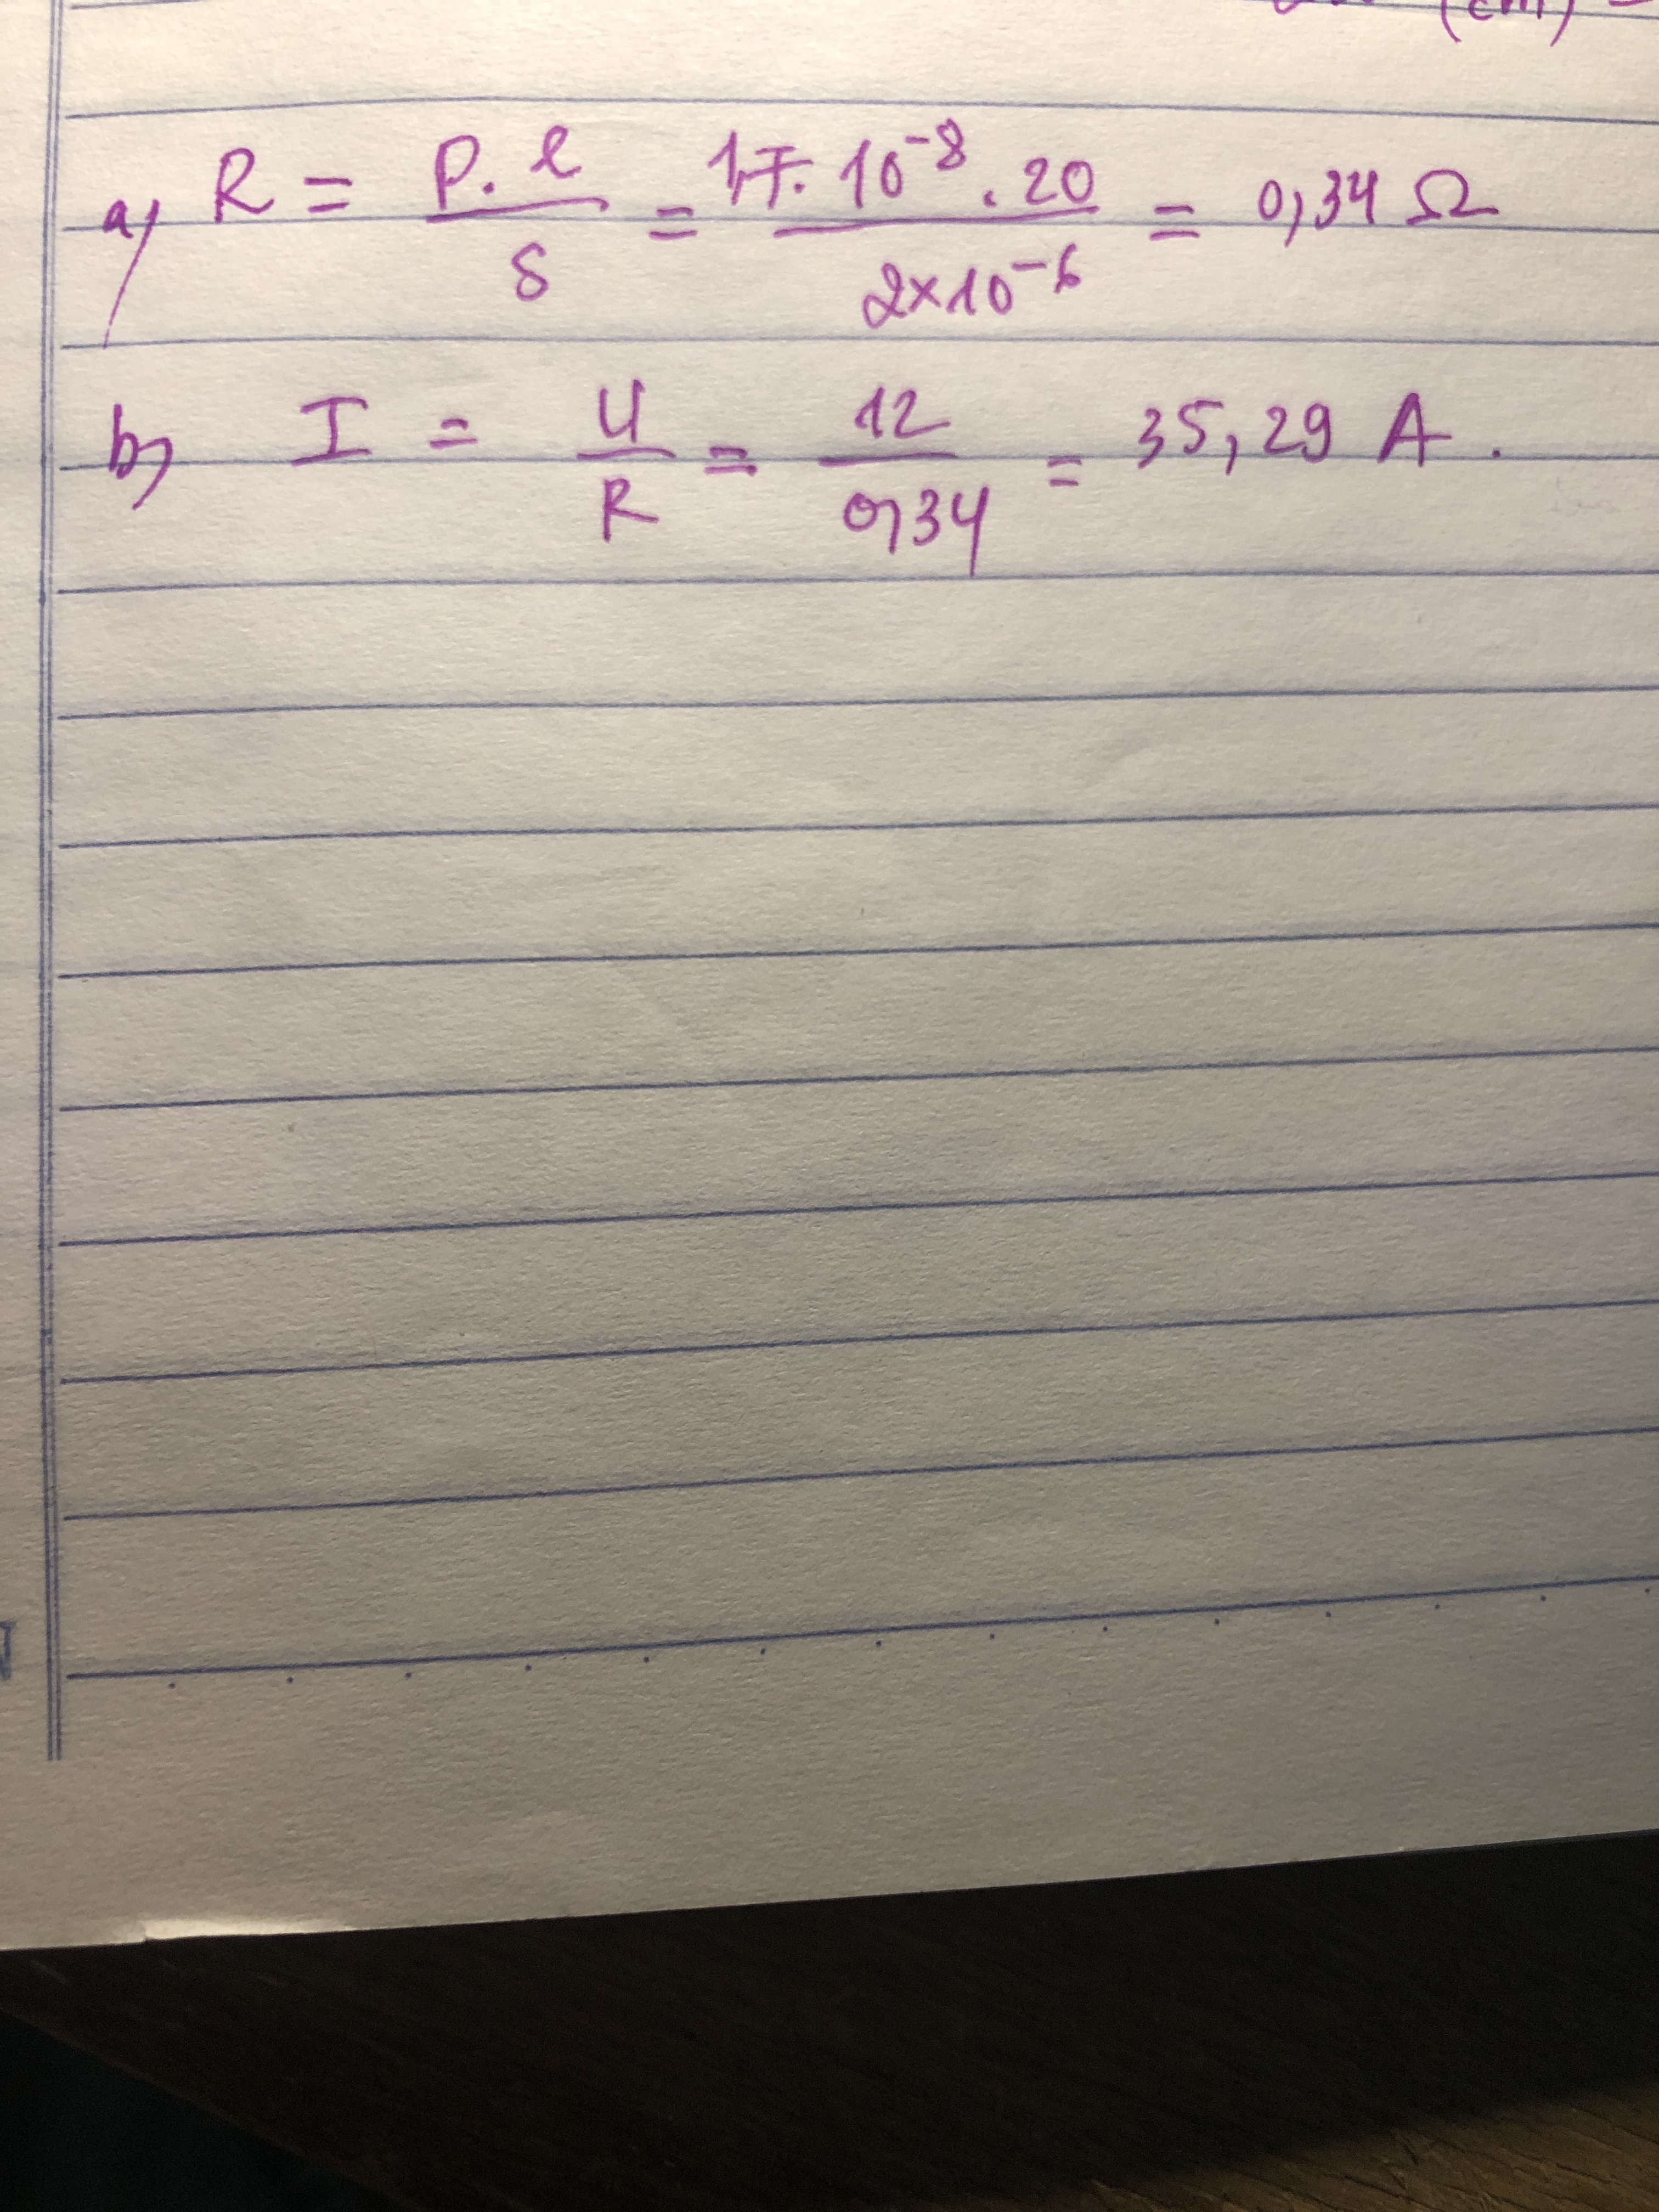 (cm)
a) R = P. l / S = 1,7. 10⁻⁸ . 20 / 2×10⁻⁶ = 0,34 Ω
b) I = U / R = 12 / 0,34 = 35,29 A .